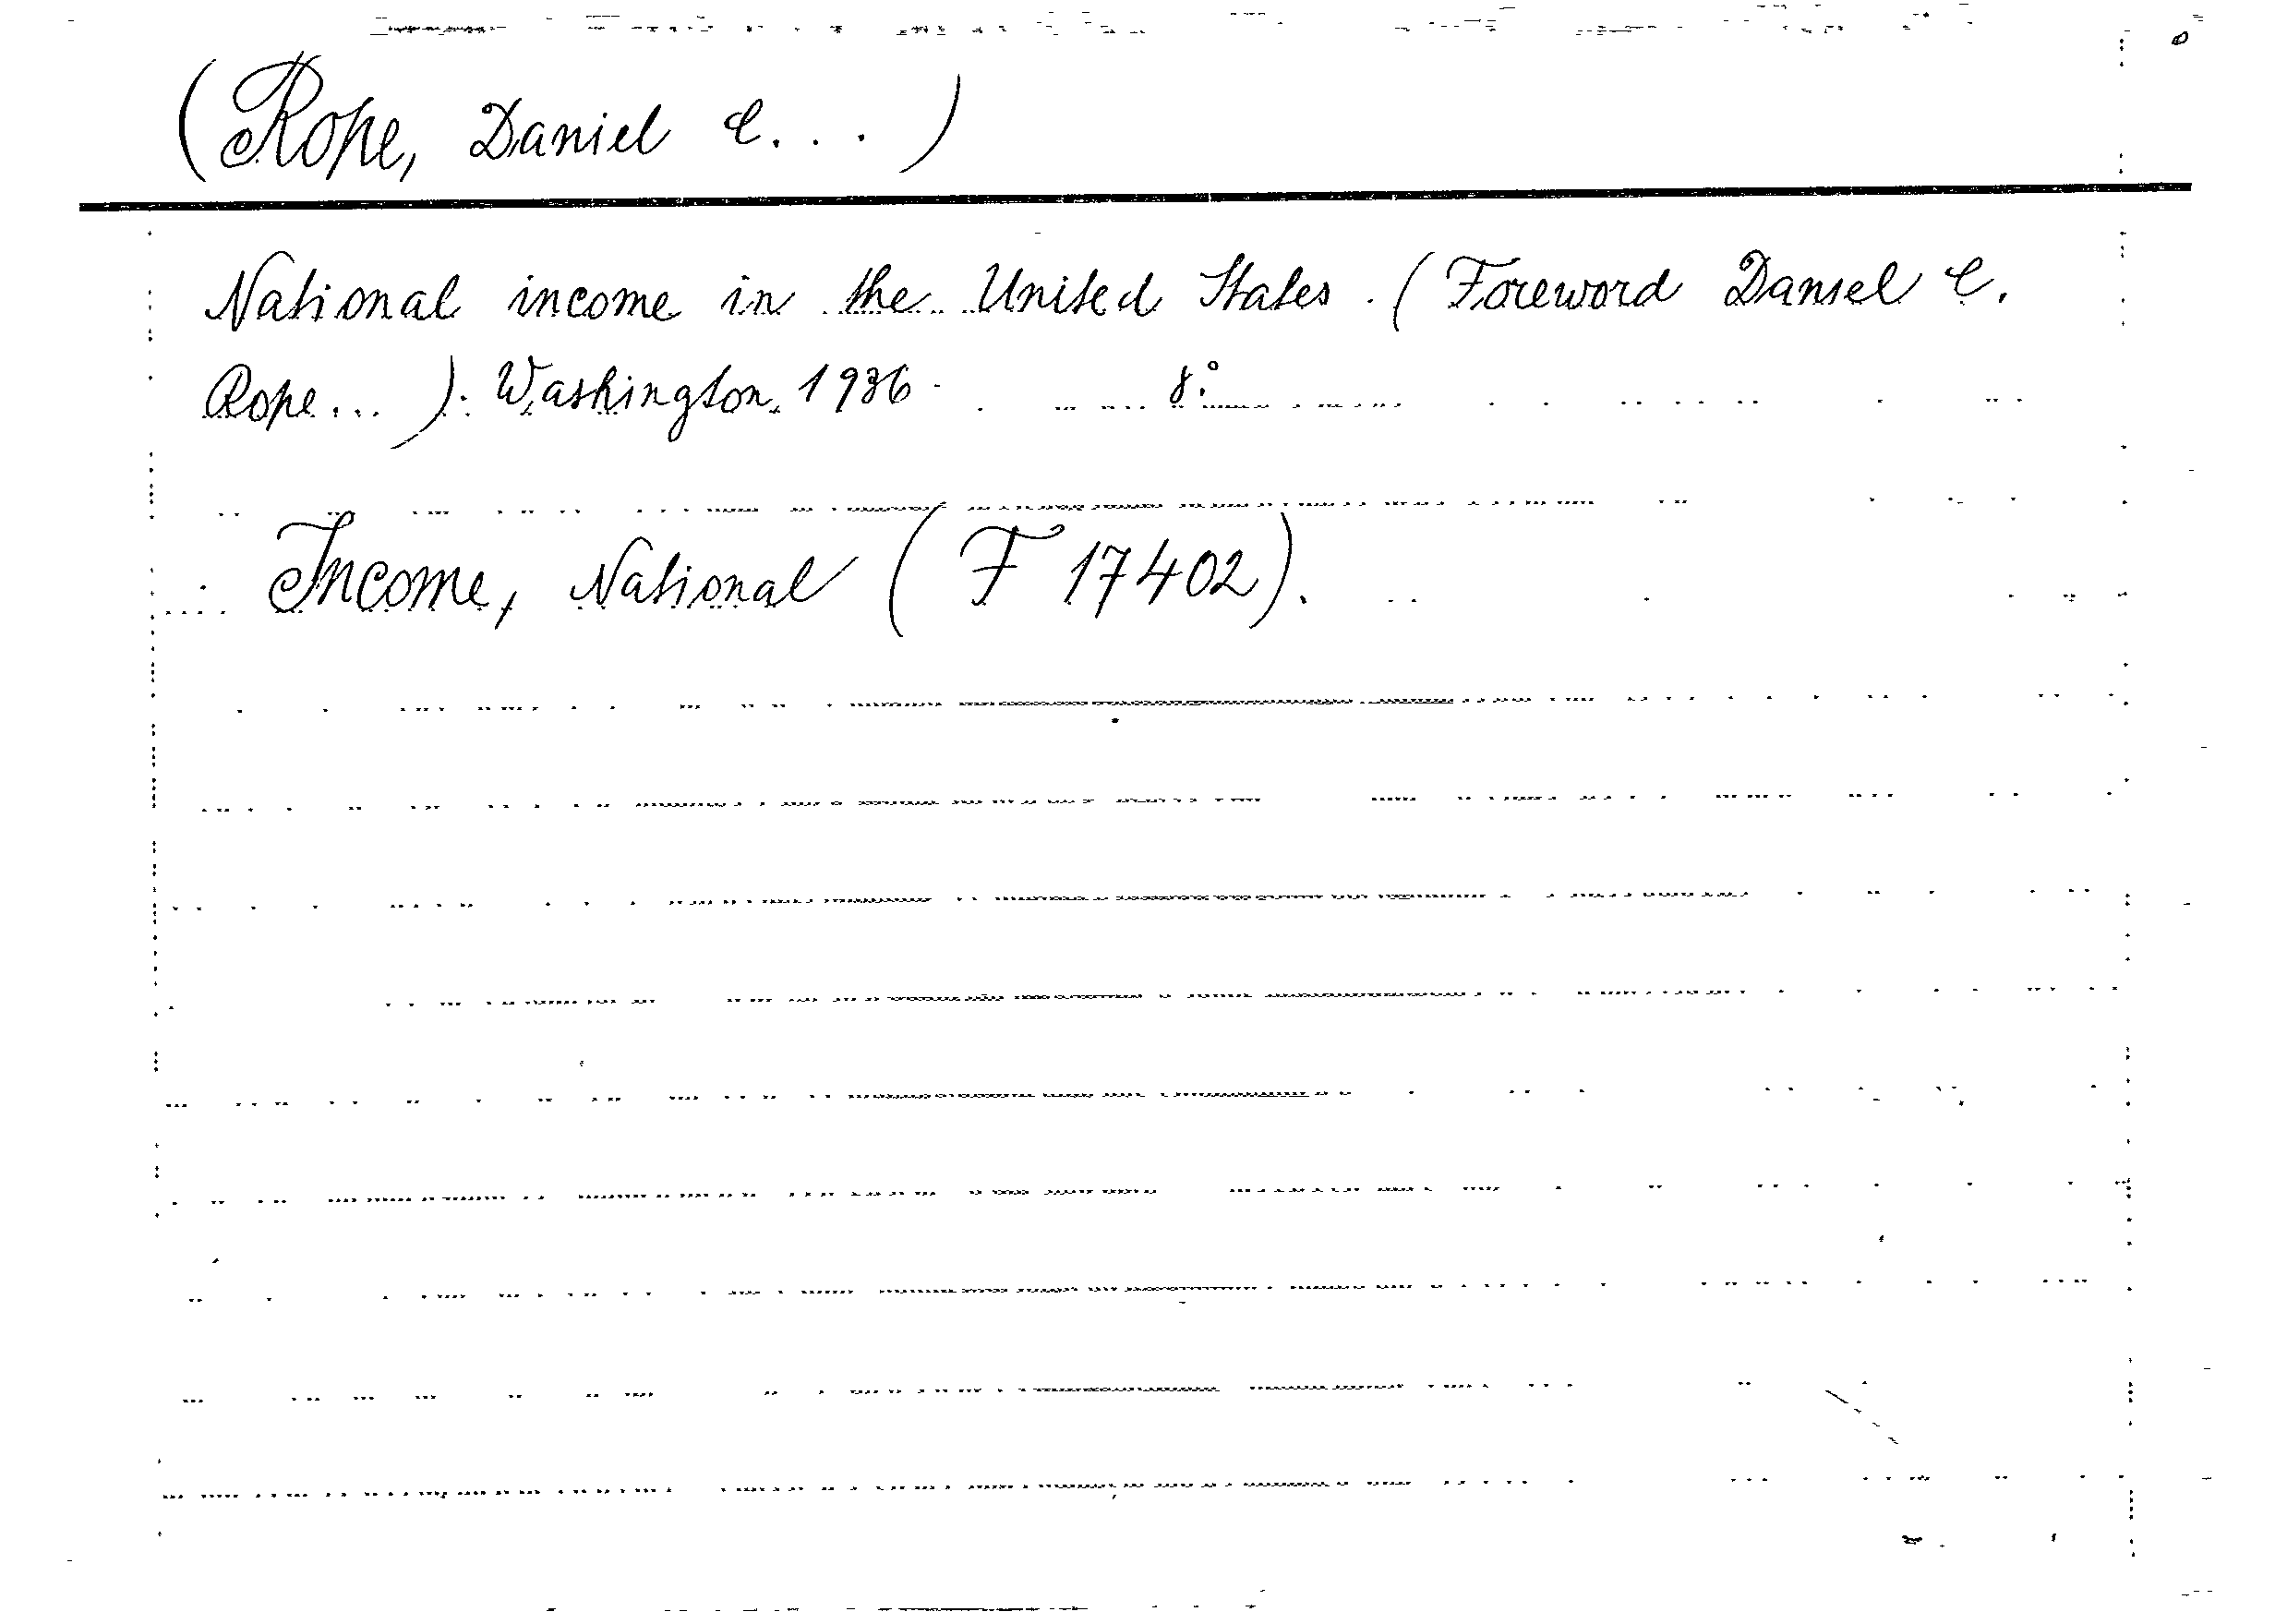 (Rope, Daniel C. . . )
National income in the United States. (Foreword Daniel C.
Rope... ). Washington, 1936. 8°.
Income, National (F 17402).